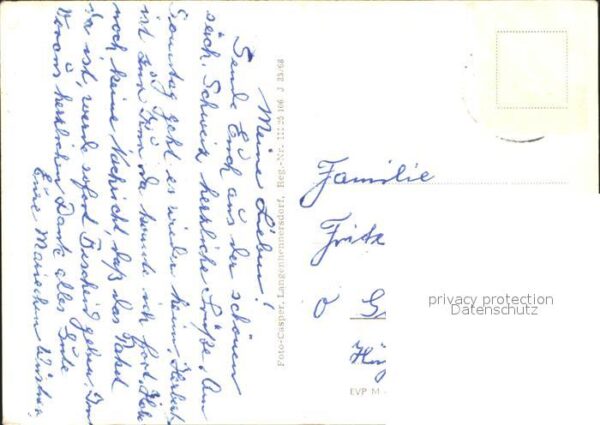 Meine Lieben!
Sende Euch aus der schönen
säch. Schweiz herzliche Grüße. Am
Sonntag geht es wieder heim. Herbert
ist zur da konnte ich fort. Habe
noch keine Nachricht, daß das Paket
da ist, werde sofort Bescheid geben. Im
Voraus herzlichen Dank alles Gute
Eure Mariechen
Foto-Casper, Langenhennersdorf, Reg.-Nr. III 25 106 J 23/68
Familie
Fritz
O G
EVP M
privacy protection
Datenschutz